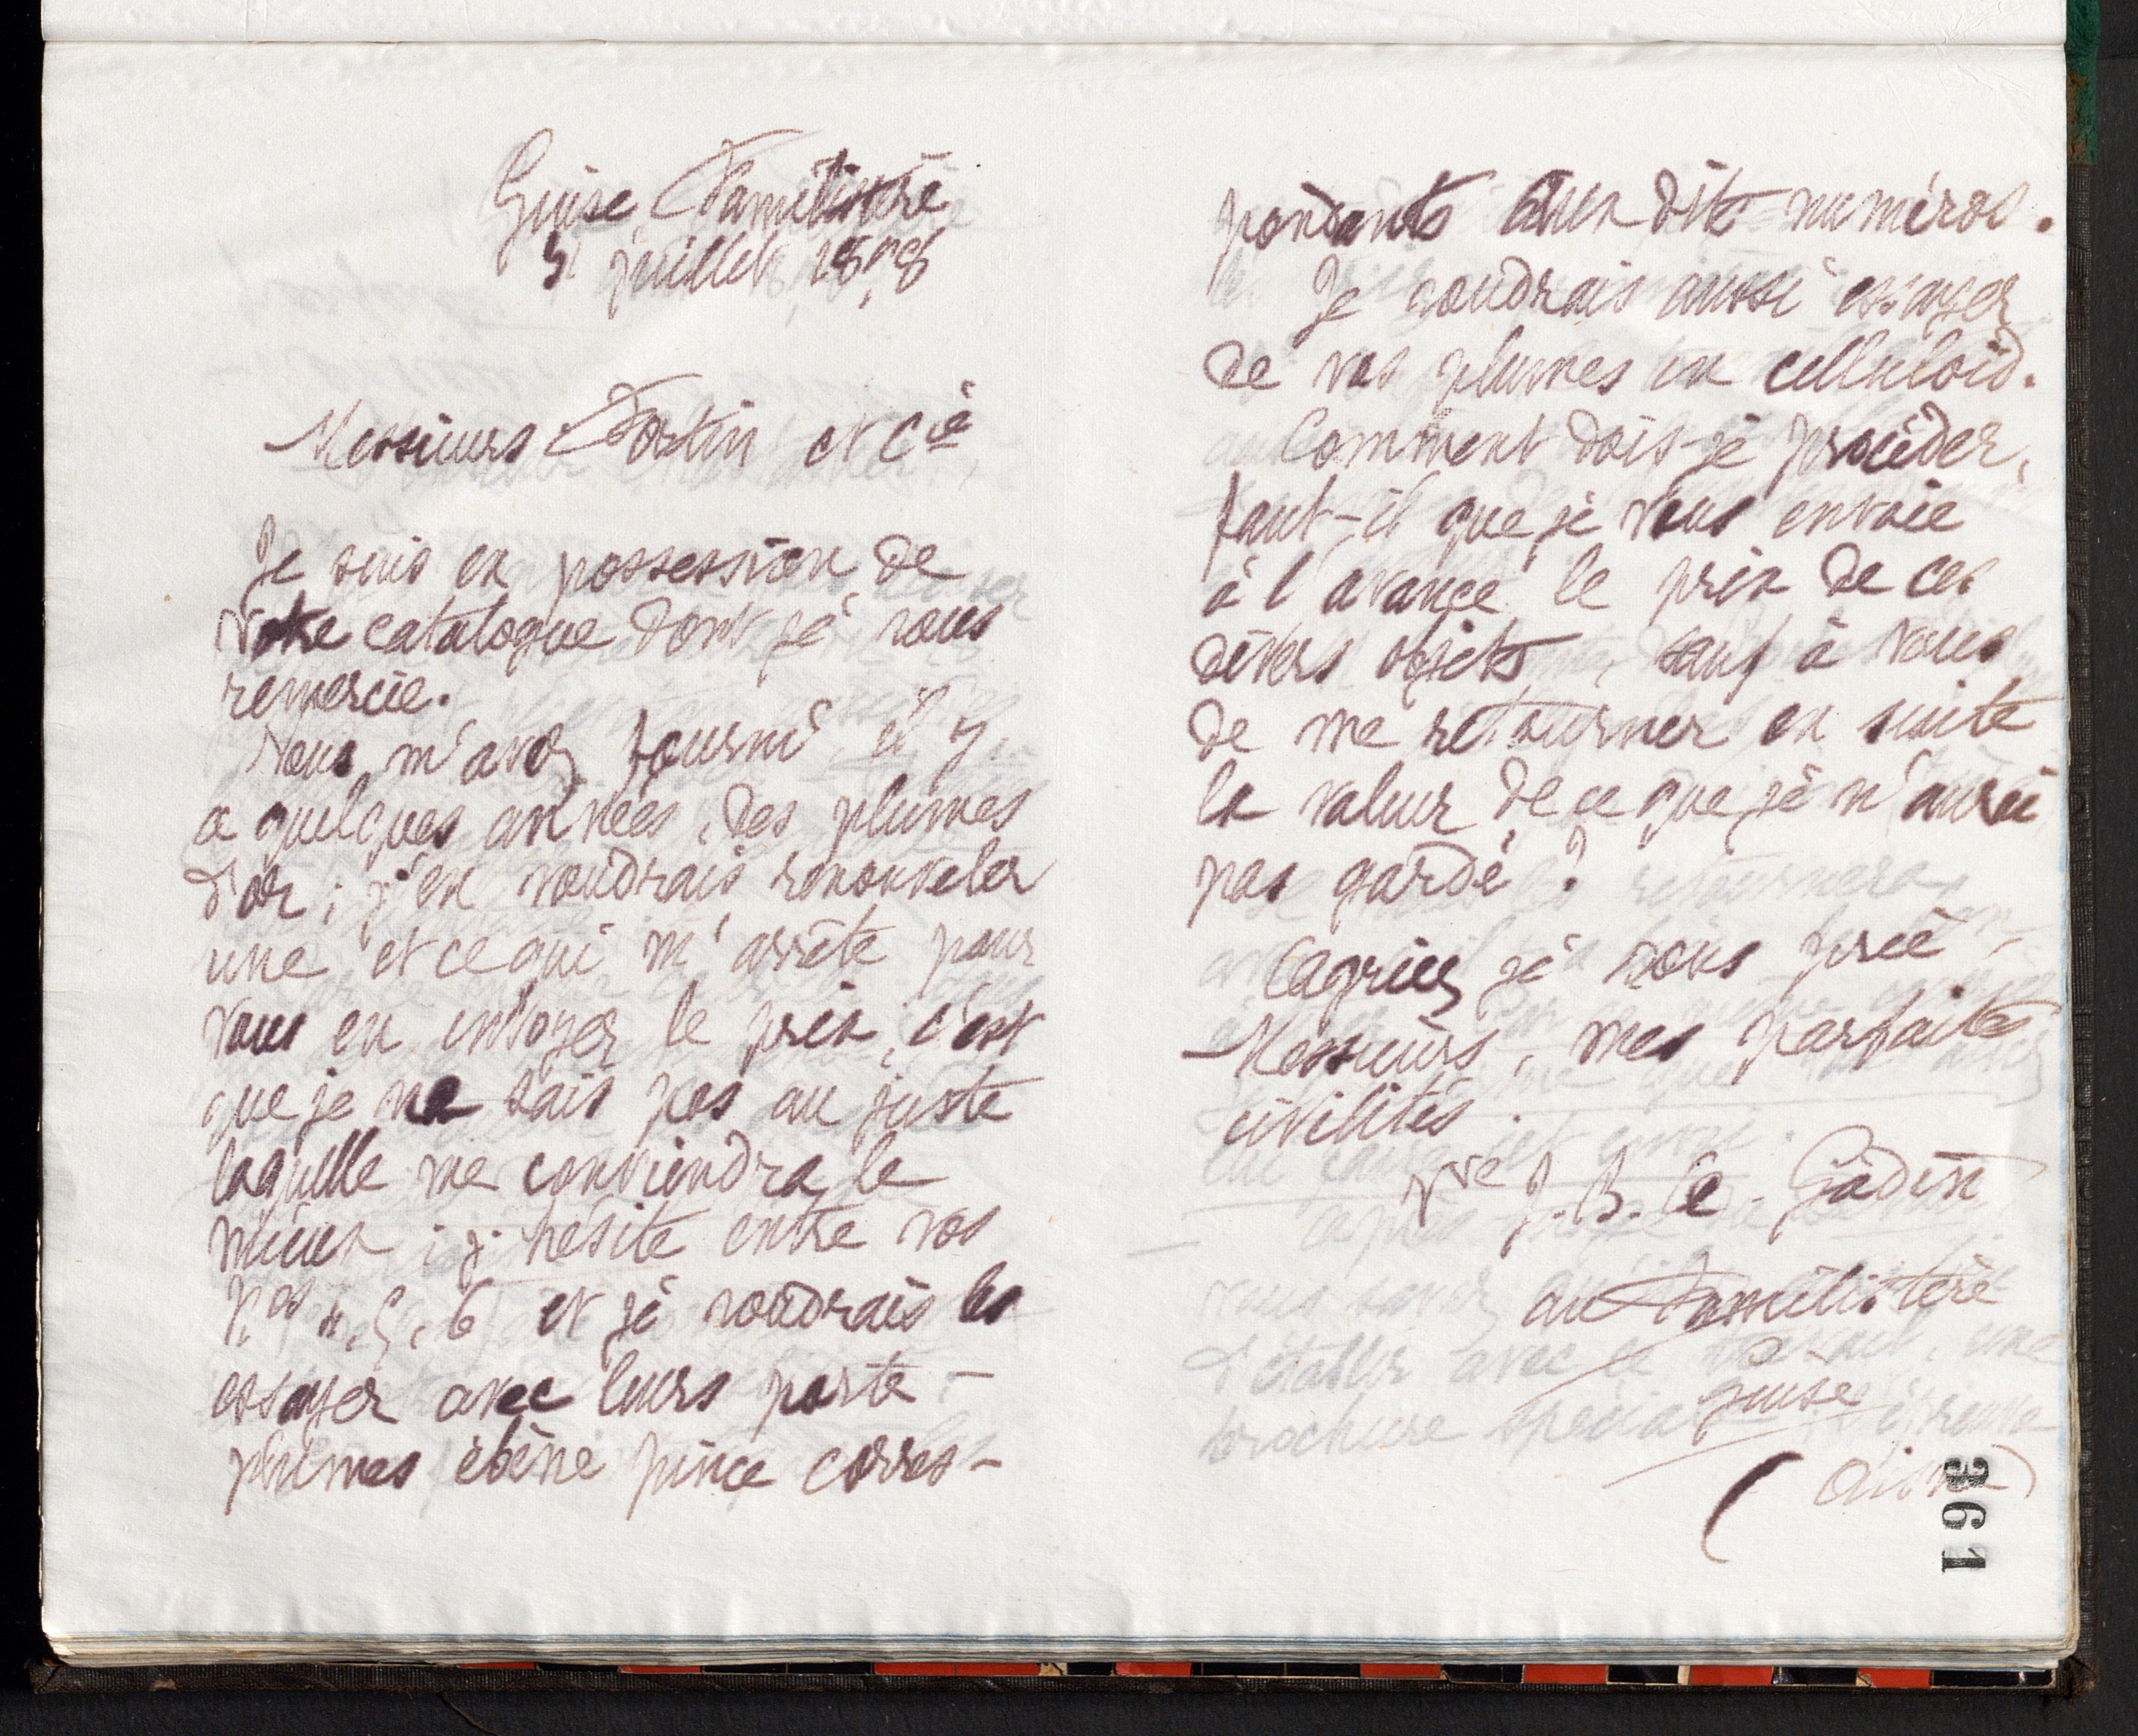 Guise, Familistère
juillet 1898
Messieurs Fortin et Cie
Je suis en possession de
votre catalogue dont je vous
remercie.
Vous m'avez fourni il y
a quelques années, des plumes
d'or ; j'en voudrais renouveler
une et ce qui m'arrête pour
vous en envoyer le prix, c'est
que je ne sais pas au juste
laquelle me conviendra le
mieux ; j'hésite entre vos
Nos 4, 5, 6 et je voudrais les
essayer avec leurs porte-
plumes ébène pince corres-
pondants aux dits numéros.
Je voudrais aussi essayer
de vos plumes en celluloïd.
Comment dois-je procéder,
faut-il que je vous envoie
à l'avance le prix de ces
divers objets, sauf à vous
de me retourner en suite
la valeur de ce que je n'aurai
pas gardé ?
Agréez je vous prie,
Messieurs, mes parfaites
civilités.
Vve J. B. Ce Godin
au Familistère
Guise
(Aisne)
361